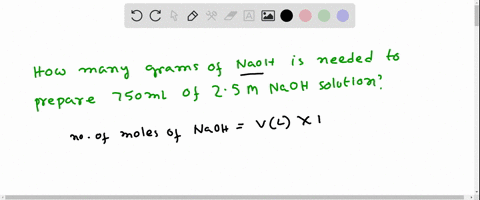 How many grams of NaOH is needed to
prepare 750ml of 2.5 m NaOH solution?
no. of moles of NaOH = V(L) X I